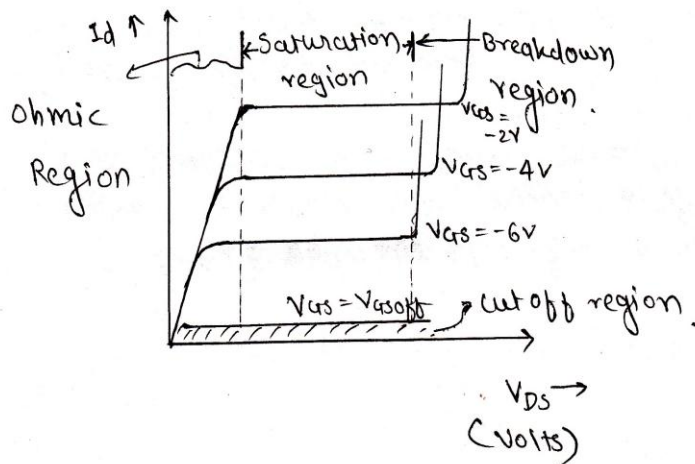 Id ↑
Saturation
region
Breakdown
region.
Ohmic
Region
VGS =
-2V
VGS = -4V
VGS = -6V
VGS = VGSOff
Cut off region.
VDS →
(Volts)